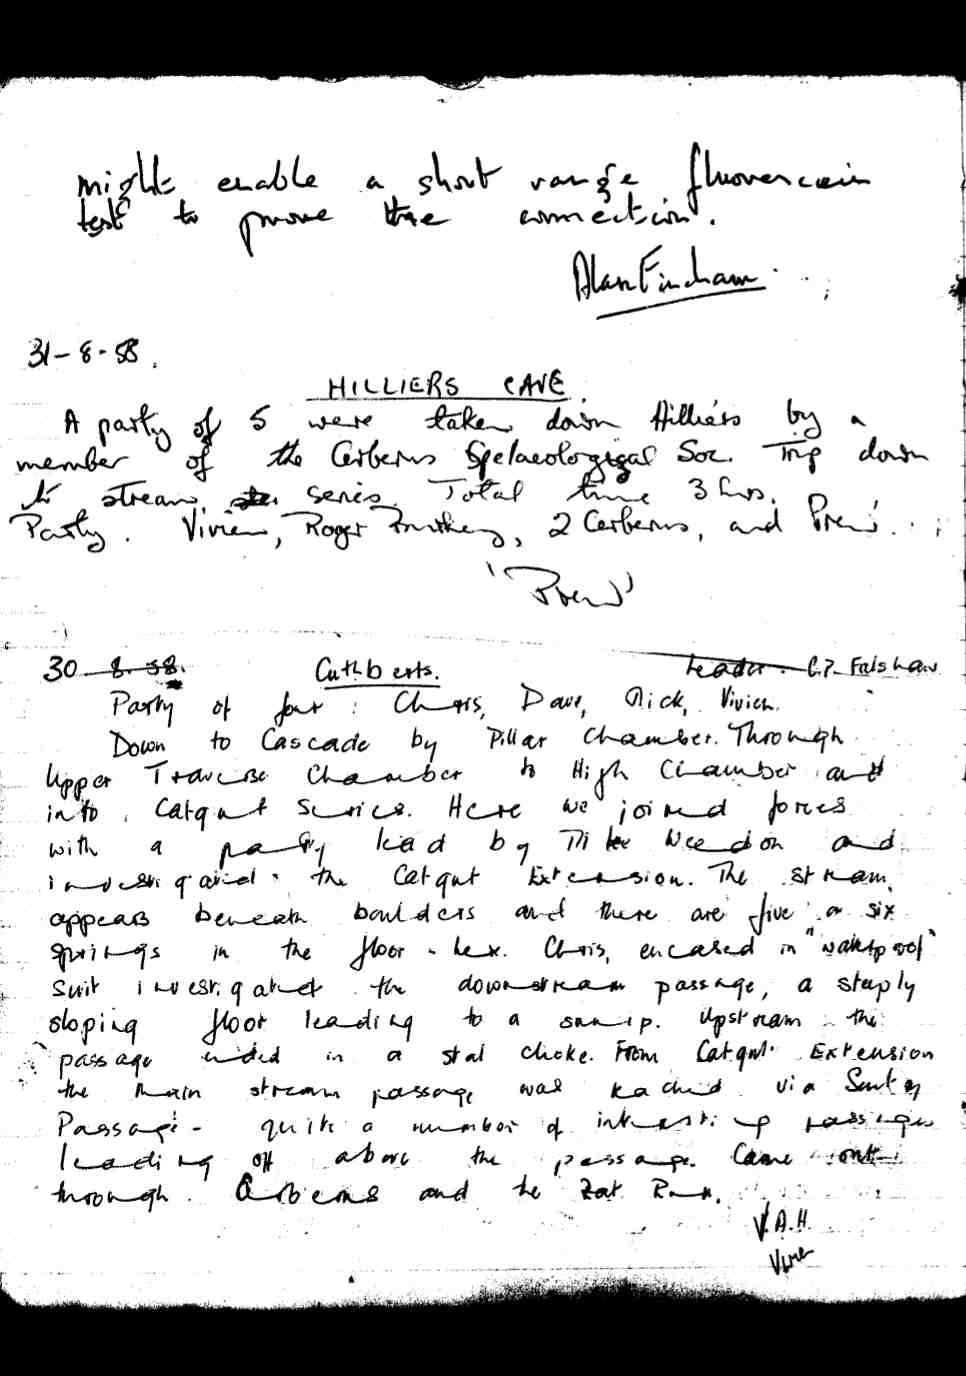 might enable a short range fluorescein
test to prove the connection.
Alan Fincham.
31-8-58.
HILLIERS CAVE.
A party of 5 were taken down Hilliers by a
member of the Cerberus Spelaeological Soc. Trip down
to stream series. Total time 3 hrs.
Party. Vivien, Roger, 2 Cerberus, and Prew.
'Prew'
30 8.58.
Cuthberts.
Leader. C.P. Falshaw
Party of four: Chris, Dave, Nick, Vivien.
Down to Cascade by Pillar Chamber. Through
Upper Traverse Chamber to High Chamber and
into Catgut Series. Here we joined forces
with a party lead by Mike Weedon and
investigated the Catgut Extension. The stream
appears beneath boulders and there are five or six
springs in the floor - here. Chris, encased in "waterproof"
suit investigated the downstream passage, a steeply
sloping floor leading to a sump. Upstream the
passage ended in a stal choke. From Catgut Extension
the main stream passage was reached via Sentry
Passage - quite a number of interesting passages
leading off above the passage. Came out
through Cerberus and the Rat Run.
V.A.H.